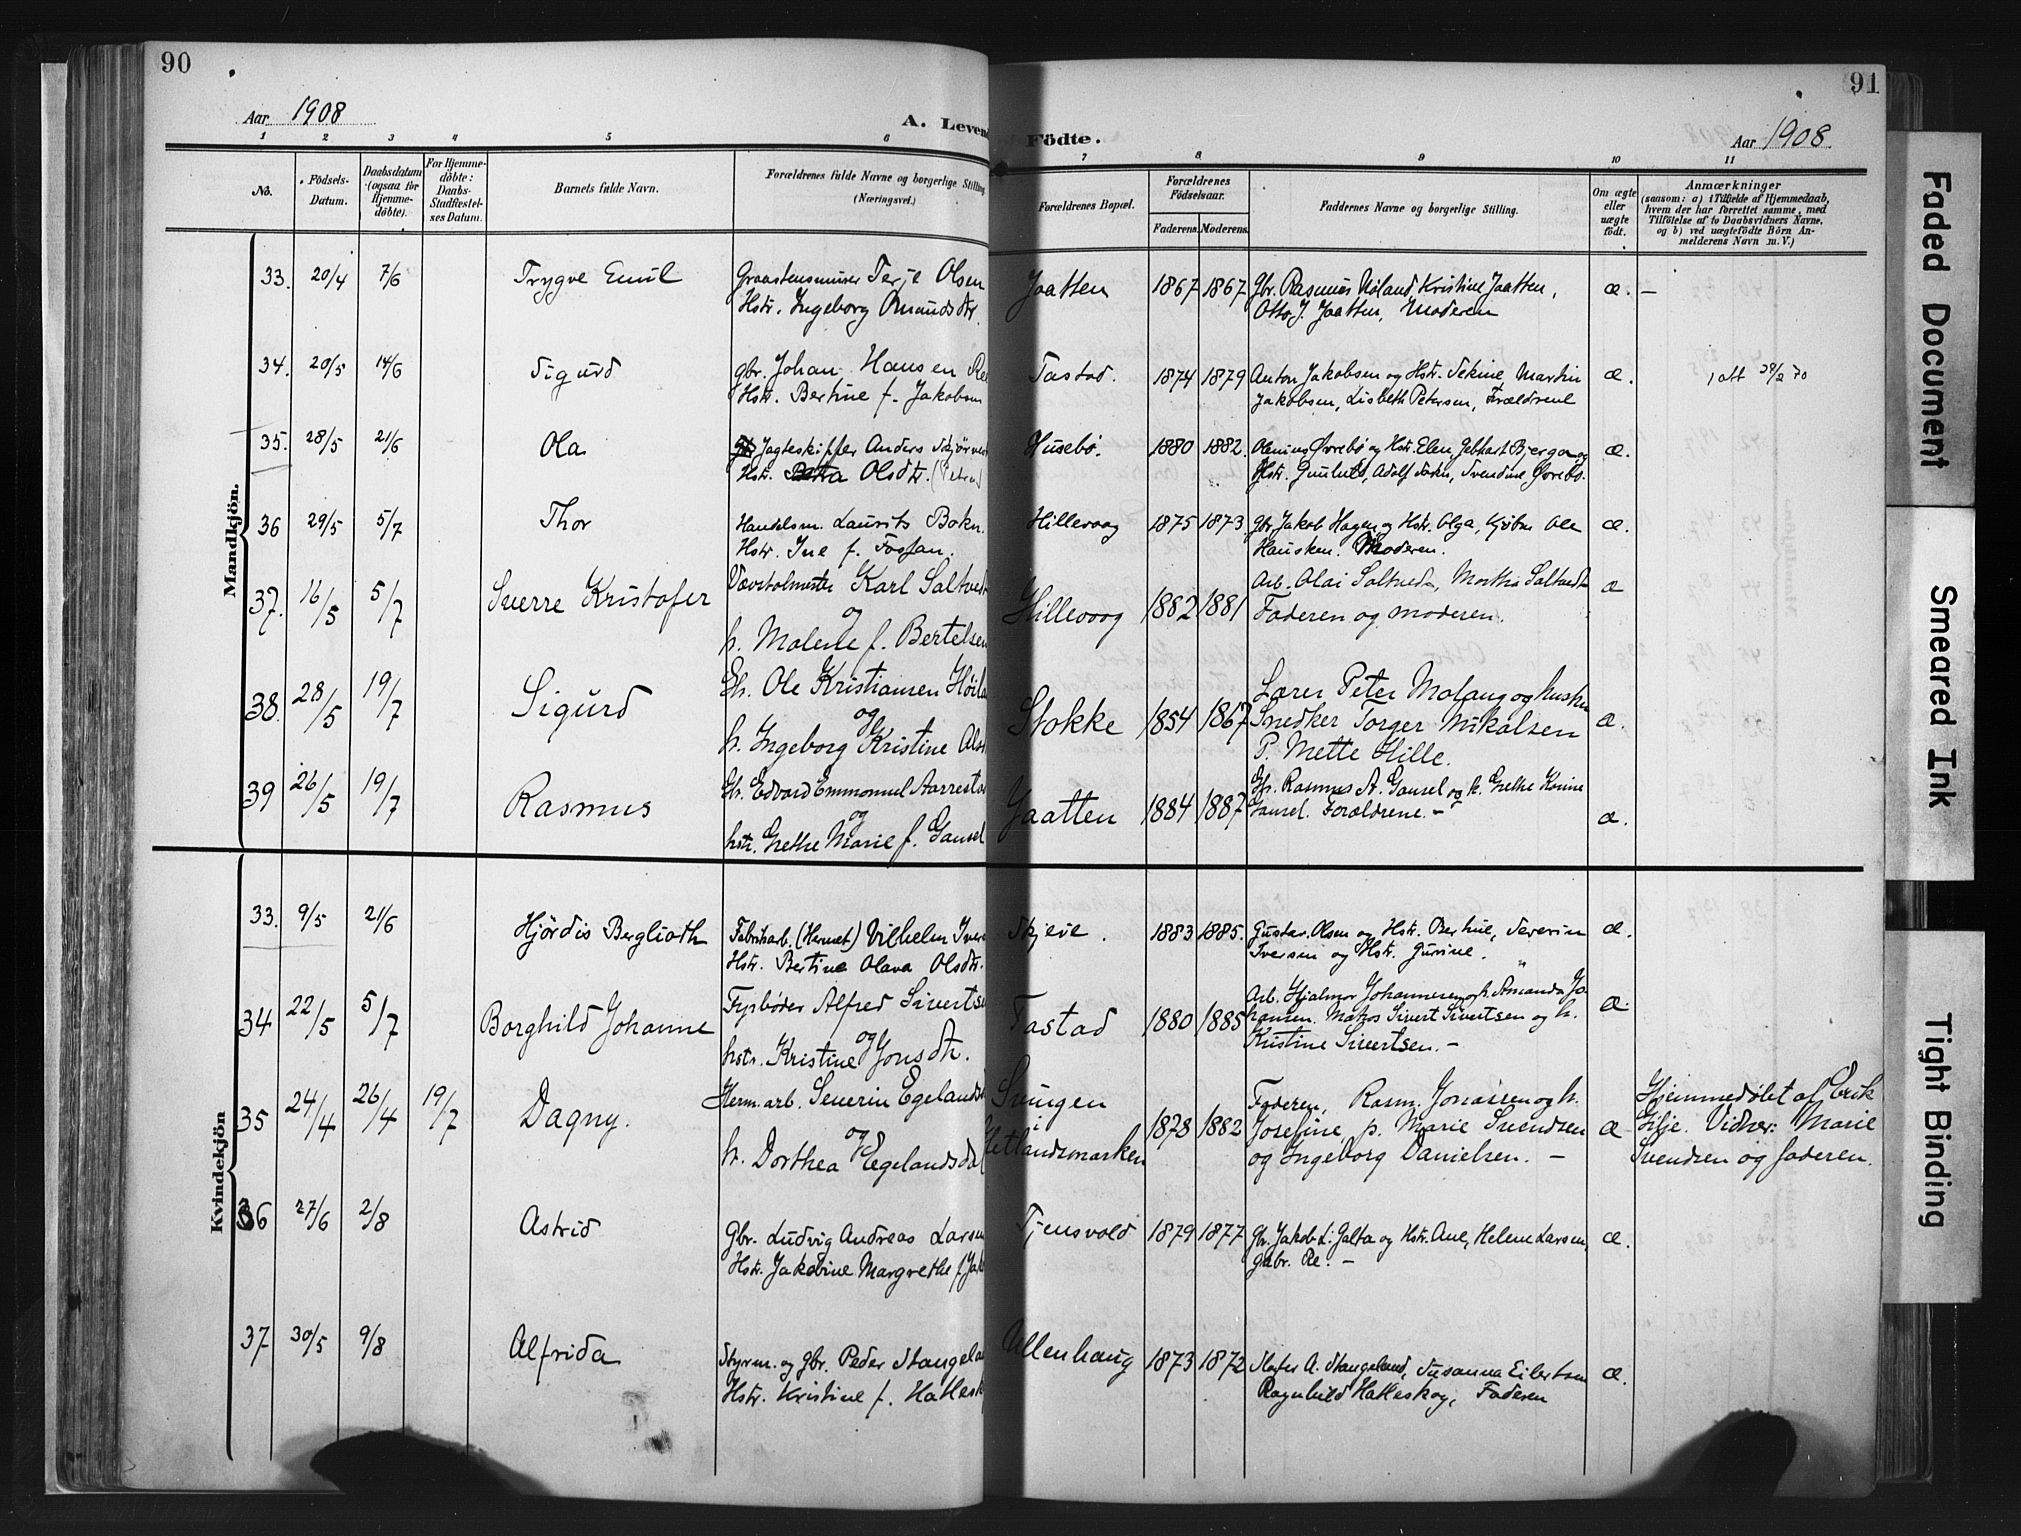 90
91
Aar 1908
A. Levend
Födte.
Aar 1908.
1 2 3 4 5 6 7 8 9 10 11
No.
Födsels-
Datum.
Daabsdatum
(ogsaa for
Hjemme-
döbte).
For Hjemme-
döbte:
Daabs-
Stadfæstel-
ses Datum.
Barnets fulde Navn.
Forældrenes fulde Navne og borgerlige Stilling
(Næringsvei.)
Forældrenes Bopæl.
Forældrenes
Födselsaar.
Faderens. Moderens.
Faddernes Navne og borgerlige Stilling.
Om ægte
eller
uægte
födt.
Anmærkninger
(saasom: a) i Tilfælde af Hjemmedaab,
hvem der har forrettet samme, med
Tilföielse af to Daabsvidners Navne,
og b) ved uægtefödte Börn An-
melderens Navn m.V.)
Mandkjön.
33. 20/4 7/6 Trygve Emil Graastensmurer Terje Olsen Jaatten 1867 1867 Gbr. Rasmus Nøland Kristine Jaatten, æ. –
Hstr. Ingeborg Omundsdtr. Otto J. Jaatten, Moderen
34. 20/5 14/6 Sigurd gbr. Johan Hansen Re Tastad. 1874 1879 Anton Jakobsen og Hstr. Sekine, Martin æ.
Hstr. Bertine f. Jakobsen Jakobsen, Lisbeth Petersen, Forældrene
35. 28/5 21/6 Ola Jagteskipper Anders Husebö. 1880 1882. Olenius Øvrebø og Hstr. Elen, æ.
Hstr. Olsdtr. (Petra) Hstr. Adolf Svendine Øvrebö.
36 29/5 5/7 Thor Handelsm. Laurits Bokn. Hillevaag 1875 1873 gbr. Jakob Hagen og Hstr. Olga, Ole æ.
Hstr. Ine f. Fossan. Hausken. Moderen.
37. 16/5 5/7 Sverre Kristofer Vævstolmester Karl Saltvedt Hillevaag 1882 1881 Arb. Olai Saltvedt, Martha Saltvedt æ
og Faderen og moderen.
h. Malene f. Bertelsen
38. 28/5 19/7 Sigurd Gb. Ole Kristiansen Höila Stokke 1854 1867 Lærer Peter Malang og hustru æ.
og Snedker Torger Mikalsen
h. Ingeborg Kristine P. Mette Hille.
39 26/5 19/7 Rasmus Gb. Edvard Emmanuel Aarrestad Jaatten 1884 1887 Gb. Rasmus A. Gausel og h. Grethe Karine æ.
og Gausel. Forældrene. –
hstr. Grethe Marie f. Gausel
Kvindekjön
33. 9/5 21/6 Hjördis Berglioth Fabrikarb. (Hermet) Vilhelm Iver Skjeie. 1883 1885. Gustav Olsen og Hstr. Bertine, Severin æ.
Hstr. Bertine Olava Olsdtr. Iversen og Hstr. Gurine.
34 22/5 5/7 Borghild Johanne Fyrbøder Alfred Sivertse Tastad 1880 1885 Arb. Hjalmar Johannesen og h. Amanda Jo- æ.
og hansen. Matros Sivert Sivertsen og h.
hstr. Kristine Jonsdtr. Kristine Sivertsen. –
35 24/4 26/4 19/7 Dagny. Herm. arb. Severin Egelandsd Svingen 1878 1882 Faderen, Rasm. Jonassen og h. æ Hjemmedöbt af Erik
og i Josefine, p. Marie Svendsen Gilje. Vidner: Marie
h. Dorthea Egelandsdal Hetlandsmarken og Ingeborg Danielsen. – Svendsen og faderen.
36 27/6 2/8 Astrid Gbr. Ludvig Andreas Larsen Tjensvold 1879 1877 Gbr. Jakob L. Jalta og Hstr. Ane, Helene Larsen, æ.
Hstr. Jakobine Margrethe f. Jak Gabr. Re. –
37 30/5 9/8 Alfrida Styrm. og gbr. Peder Stangelan Ullenhaug 1873 1872 A. Stangeland, Susanna Eilertsen æ.
Hstr. Kristine f. Hatlesk Ragnhild Hatleskog, Faderen
Faded Document
Smeared Ink
Tight Binding